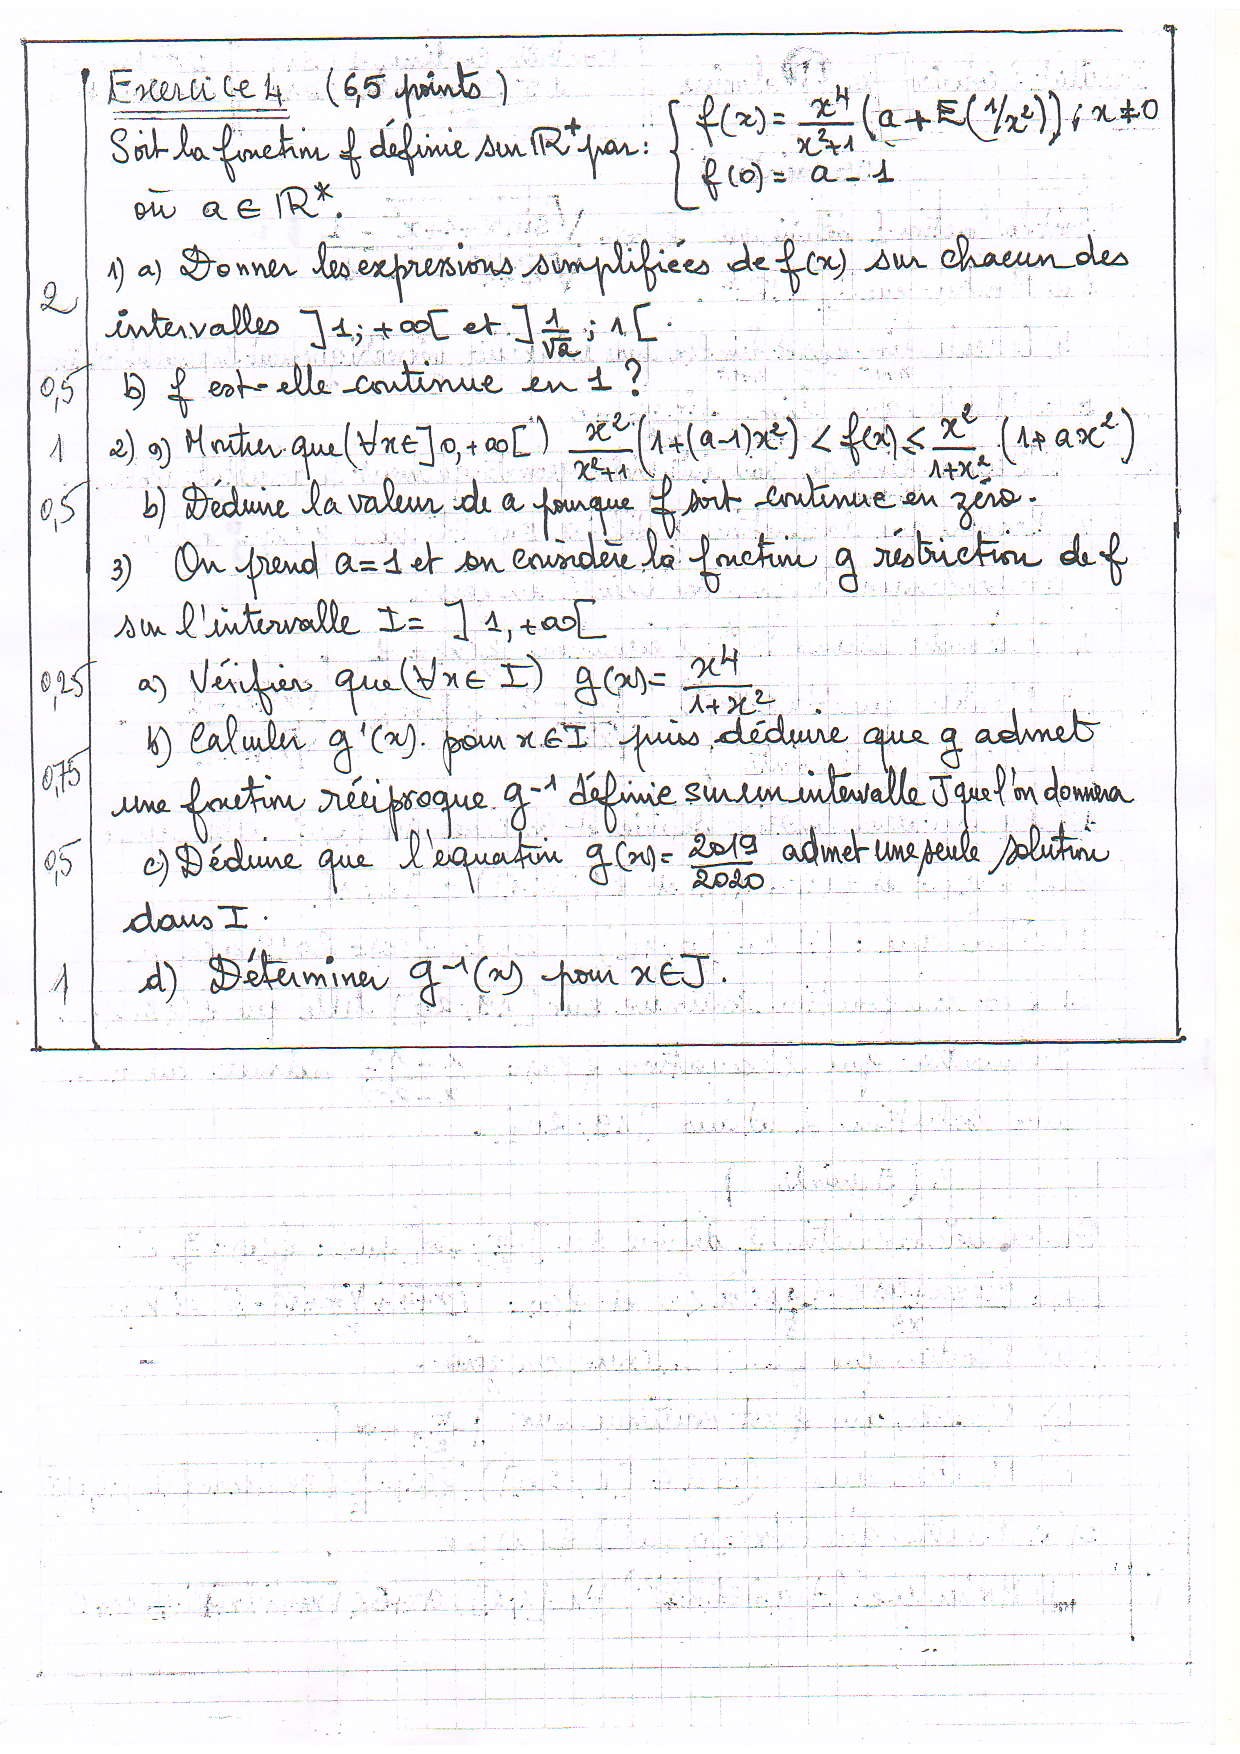 Exercice 4 (6,5 points)
Soit la fonction f définie sur ℝ⁺ par : { f(x) = x⁴/(x²+1) (a + E(1/x²)) ; x ≠ 0
f(0) = a - 1
où a ∈ ℝ*.
1) a) Donner les expressions simplifiées de f(x) sur chacun des
2
intervalles ]1; +∞[ et ]1/√2 ; 1[.
0,5 b) f est-elle continue en 1 ?
1 2) a) Montrer que (∀x ∈ ]0, +∞[) x²/(x²+1) (1+(a-1)x²) < f(x) ≤ x²/(1+x²) (1+ax²)
0,5 b) Déduire la valeur de a pour que f soit continue en zéro.
3) On prend a = 1 et on considère la fonction g réstriction de f
sur l'intervalle I = ]1, +∞[
0,25 a) Vérifier que (∀x ∈ I) g(x) = x⁴/(1+x²)
b) Calculer g'(x) pour x ∈ I puis déduire que g admet
0,75
une fonction réciproque g⁻¹ définie sur un intervalle J que l'on donnera
0,5 c) Déduire que l'équation g(x) = 2019/2020 admet une seule solution
dans I.
1 d) Déterminer g⁻¹(x) pour x ∈ J.